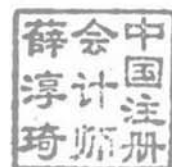 中国注册
会计师
薛淳琦